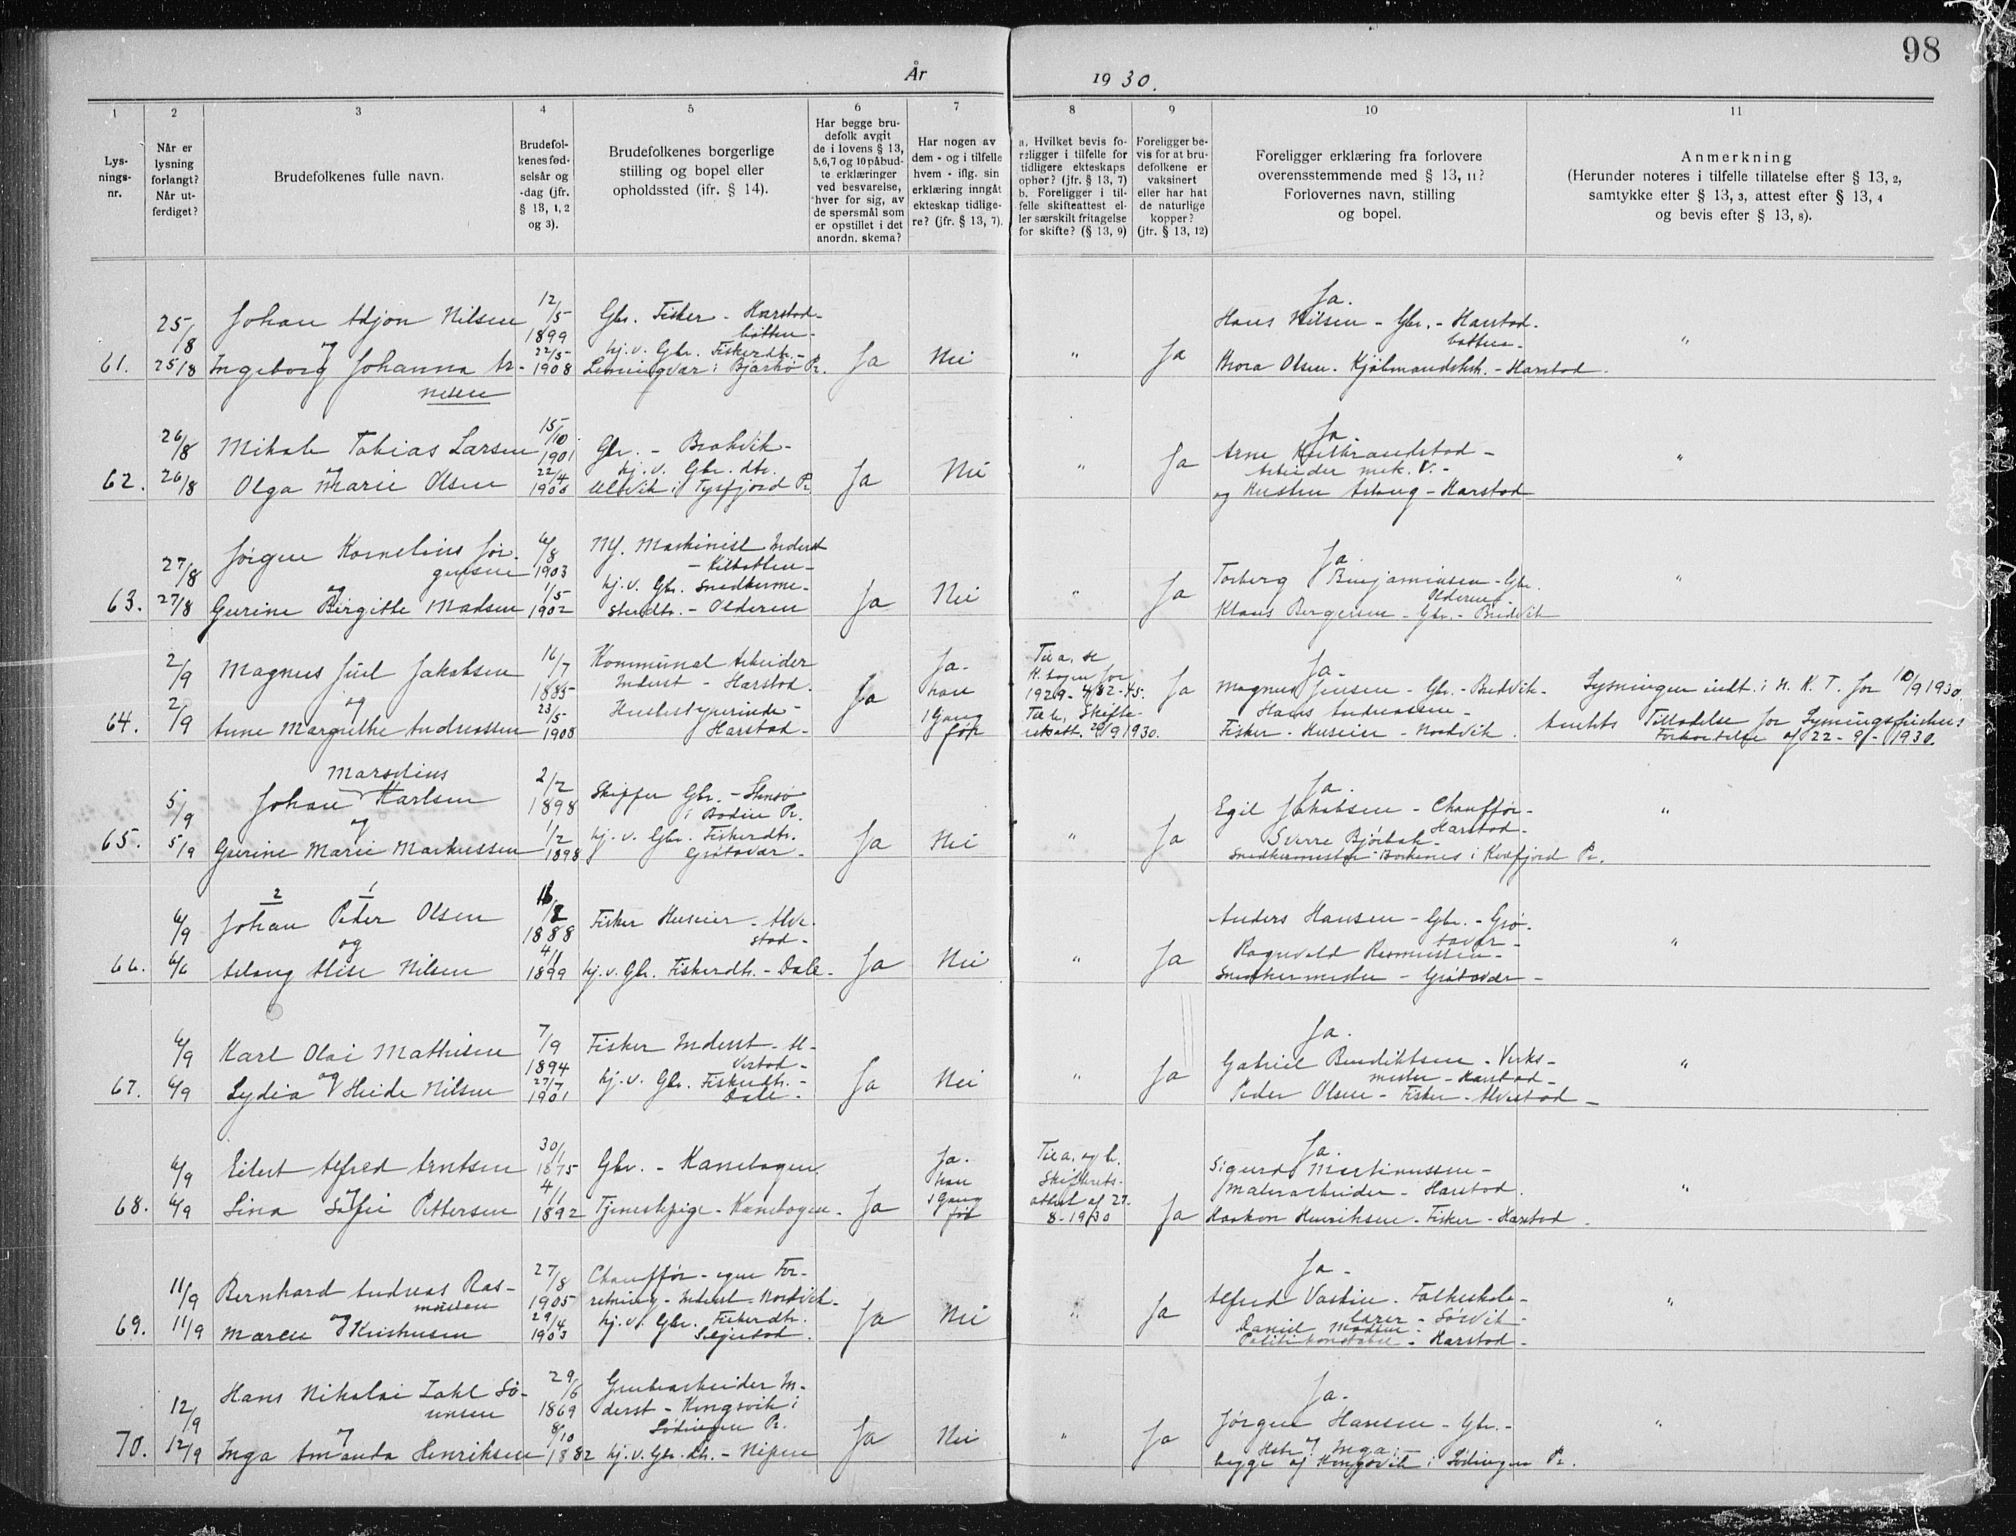 98
År 1930.
1 2 3 4 5 6 7 8 9 10 11
Lys-
nings-
nr.
Når er
lysning
forlangt?
Når ut-
ferdiget?
Brudefolkenes fulle navn.
Brudefol-
kenes fød-
selsår og
-dag (jfr.
§ 13, 1, 2
og 3).
Brudefolkenes borgerlige
stilling og bopel eller
opholdssted (jfr. § 14).
Har begge bru-
defolk avgit
de i lovens § 13,
5,6,7 og 10 påbud-
te erklæringer
ved besvarelse,
hver for sig, av
de spørsmål som
er opstillet i det
anordn. skema?
Har nogen av
dem - og i tilfelle
hvem - iflg. sin
erklæring inngåt
ekteskap tidlige-
re? (jfr. § 13, 7).
a. Hvilket bevis fo-
religger i tilfelle for
tidligere ekteskaps
ophør? (jfr. § 13, 7)
b. Foreligger i til-
felle skifteattest el-
ler særskilt fritagelse
for skifte? (§ 13, 9)
Foreligger be-
vis for at bru-
defolkene er
vaksinert
eller har hat
de naturlige
kopper?
(jfr. § 13, 12)
Foreligger erklæring fra forlovere
overensstemmende med § 13, 11?
Forlovernes navn, stilling
og bopel.
Anmerkning
(Herunder noteres i tilfelle tillatelse efter § 13, 2,
samtykke efter § 13, 3, attest efter § 13, 4
og bevis efter § 13, 8).
61.
25/8
25/8
Johan Nilsen
og
Ingeborg Johanna Ar-
nesen
12/5
1899
22/5
1908
Gbr. Fisker - Harstad-
botten -
hj.v. Gbr. Fiskerdtr. -
i Bjarkø Pr.
Ja
Nei
"
Ja
Ja.
Hans Nilsen - Gbr. - Harstad-
botten -
Thora Olsen - - Harstad.
"
62.
26/8
26/8
Mikal Tobias Larsen
og
Olga Marie Olsen
15/10
1901
22/4
Gbr. -
hj.v. Gbr. dtr.
i Tysfjord Pr.
Ja
Nei
"
Ja
Ja.
Arne -
Arbeider mek. V. -
og Hustru Aslaug - Harstad
"
63.
27/8
27/8
Jørgen Kornelius Jør-
gensen
og
Gurine Birgitte Madsen
6/8
1903
1/5
1902
Maskinist Inderst
- Kilbotten -
hj.v. Gbr. Snedkerme-
sterdtr. - Olderen
Ja
Nei
"
Ja
Ja
Torberg Benjaminsen - Gbr.
Olderen
Klaus Bergersen - Gbr. -
"
64.
2/9
2/9
Magnus Juel Jakobsen
og
Anne Margrethe Andreassen
16/7
1885
23/5
1908
Kommunal Arbeider
Inderst - Harstad.
Husbestyrerinde -
Harstad -
Ja
Ja.
han
1 Gang
før
Til a. se
K. bogen for
1929 - 4/82 - 45.
Til b. Skifte-
1930.
Ja
Ja -
Magnus Jensen - Gbr. -
Hans Andreassen -
Fisker - Huseier - Nordvik.
Lysningen indt. i N. K. T. for 10/9 1930
Amtets Tilladelse for Lysningsfristens
Forkortelse af 22 - 9 - 1930.
65.
5/9
5/9
Marselius
Johan Karlsen
og
Gurine Marie Markussen
2/2
1898
1/2
1898
Skipper Gbr. -
i Bodin Pr.
hj.v. Gbr. Fiskerdtr.
Grøtavær -
Ja
Nei
"
Ja
Ja.
Egil Jakobsen - Chauffør -
Harstad -
Sverre Bjørbak -
Snedkermester - Borkenes i Kvæfjord Pr.
"
66.
6/9
6/6
2 1
Johan Peder Olsen
og
Aslaug Alise Nilsen
1888
4/1
1899
Fisker Huseier - Alve-
stad -
hj.v. Gbr. Fiskerdtr. - Dale -
Ja
Nei
"
Ja
Anders Hansen - Gbr. - Grø-
tavær -
Ragnvald Rasmussen -
Snedkermester - Grøtavær -
"
67.
6/9
6/9
Karl Olai Mathisen
og
Lydia Heide Nilsen
7/9
1894
27/7
1901
Fisker Inderst - Al-
vestad -
hj.v. Gbr. Fiskerdtr. -
Dale -
Ja
Nei
"
Ja
Ja.
Gabriel Bendiktsen - Verks-
mester - Harstad -
Peder Olsen - Fisker - Alvestad -
"
68.
6/9
6/9
Eilert Alfred Arntsen
og
Lina Sofie Pettersen
30/1
1875
4/11
1892
Gbr. - Kanebogen.
Tjenestepige - Kanebogen.
Ja
Ja.
han
1 Gang
før
Til a. og b.
Skifterets-
attest af 27.
8 - 1930
Ja
Ja.
Sigurd Martinussen -
Malerarbeider - Harstad.
Haakon Henriksen - Fisker - Harstad.
"
69.
11/9
11/9
Bernhard Andreas Ras-
mussen
og
Maren Kristensen
27/8
1905
29/4
1903
Chauffør - egen For-
retning - Inderst - Nordvik -
hj.v. Gbr. Fiskerdtr.
Ja
Nei
"
Ja
Ja -
Alfred - Folkeskole-
lærer - Sørvik -
Daniel Madsen -
Politikonstabel - Harstad -
"
70.
12/9
12/9
Hans Nikolai Zahl Sø-
rensen
og
Inga Amanda Henriksen
29/6
1869
8/10
1882
Grubearbeider In-
derst - Kongsvik i
Lødingen Pr.
hj.v. Gbr. dtr. - Nipen
Ja
Nei
"
Ja
Ja -
Jørgen Hansen - Gbr. -
og Hstr. Inga -
begge af Kongsvik i Lødingen Pr.
"